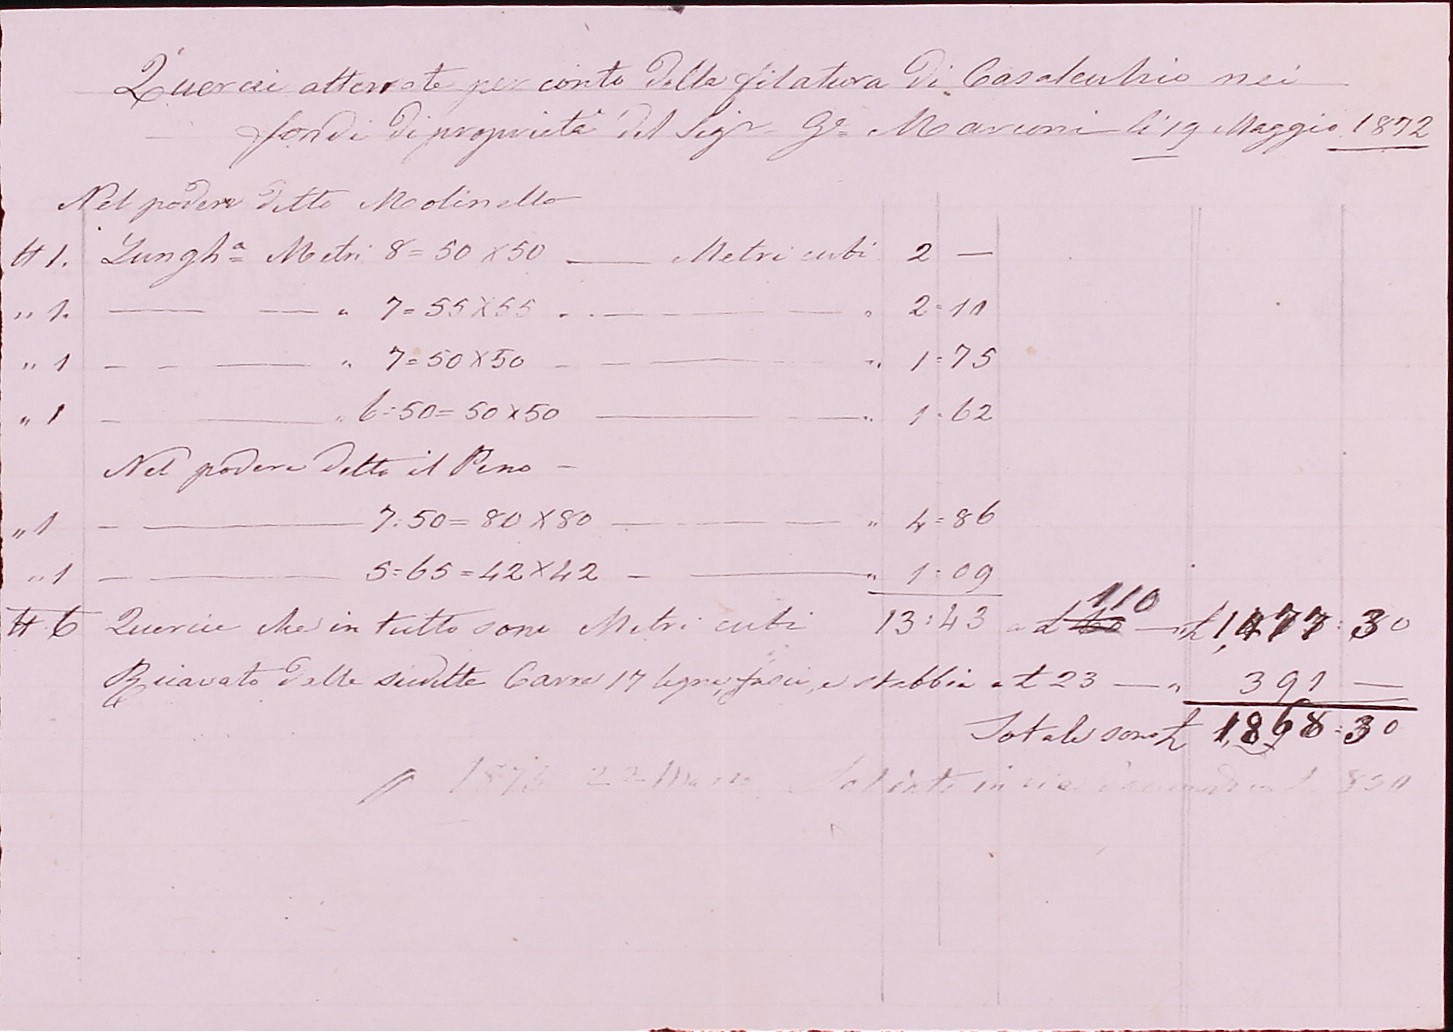 Querci atterrate per conto della filatura di Casalecchio nei
fondi di proprietà del Sigr. Ge Marconi li 19 Maggio 1872
Nel podere detto Molinello
N 1. Lungha Metri 8=50 X 50 — Metri cubi 2 —
" 1. — — " 7=55 X 55 — " 2=11
" 1 — — " 7=50 X 50 — " 1=75
" 1 — " 6=50=50 X 50 — " 1=62
Nel podere detto il Pino —
" 1 — 7:50=80 X 80 — " 4=86
" 1 — 5=65=42 X 42 — " 1=09
N 6 Quercie che in tutto sono Metri cubi 13:43 a £ 110 — £ 1,477:30
Ricavato dalle suddette Carra 17 legne, fasci, e stebbia a £ 23 — " 391 —
Totale sono £ 1,868:30
1873 22 in 850